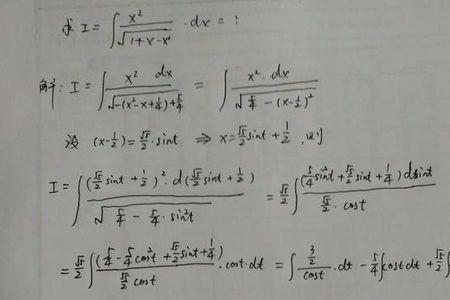 求 I = ∫ x²/√(1+x-x²) · dx = ?
解: I = ∫ x² dx/√(-(x²-x+1/4)+5/4) = ∫ x²·dx/√(5/4-(x-1/2)²)
设 (x-1/2) = √5/2·sint ⇒ x = √5/2 sint + 1/2 , 则
I = ∫ (√5/2 sint + 1/2)²·d(√5/2 sint + 1/2)/√(5/4 - 5/4·sin²t) = √5/2 ∫ (5/4 sin²t + √5/2 sint + 1/4) dsint/(√5/2·cost)
= √5/2 ∫ (5/4 - 5/4 cos²t + √5/2 sint + 1/4)/(√5/2 cost) ·cost·dt = ∫ (3/2)/cost ·dt - 5/4 ∫ cost dt + √5/2 ∫